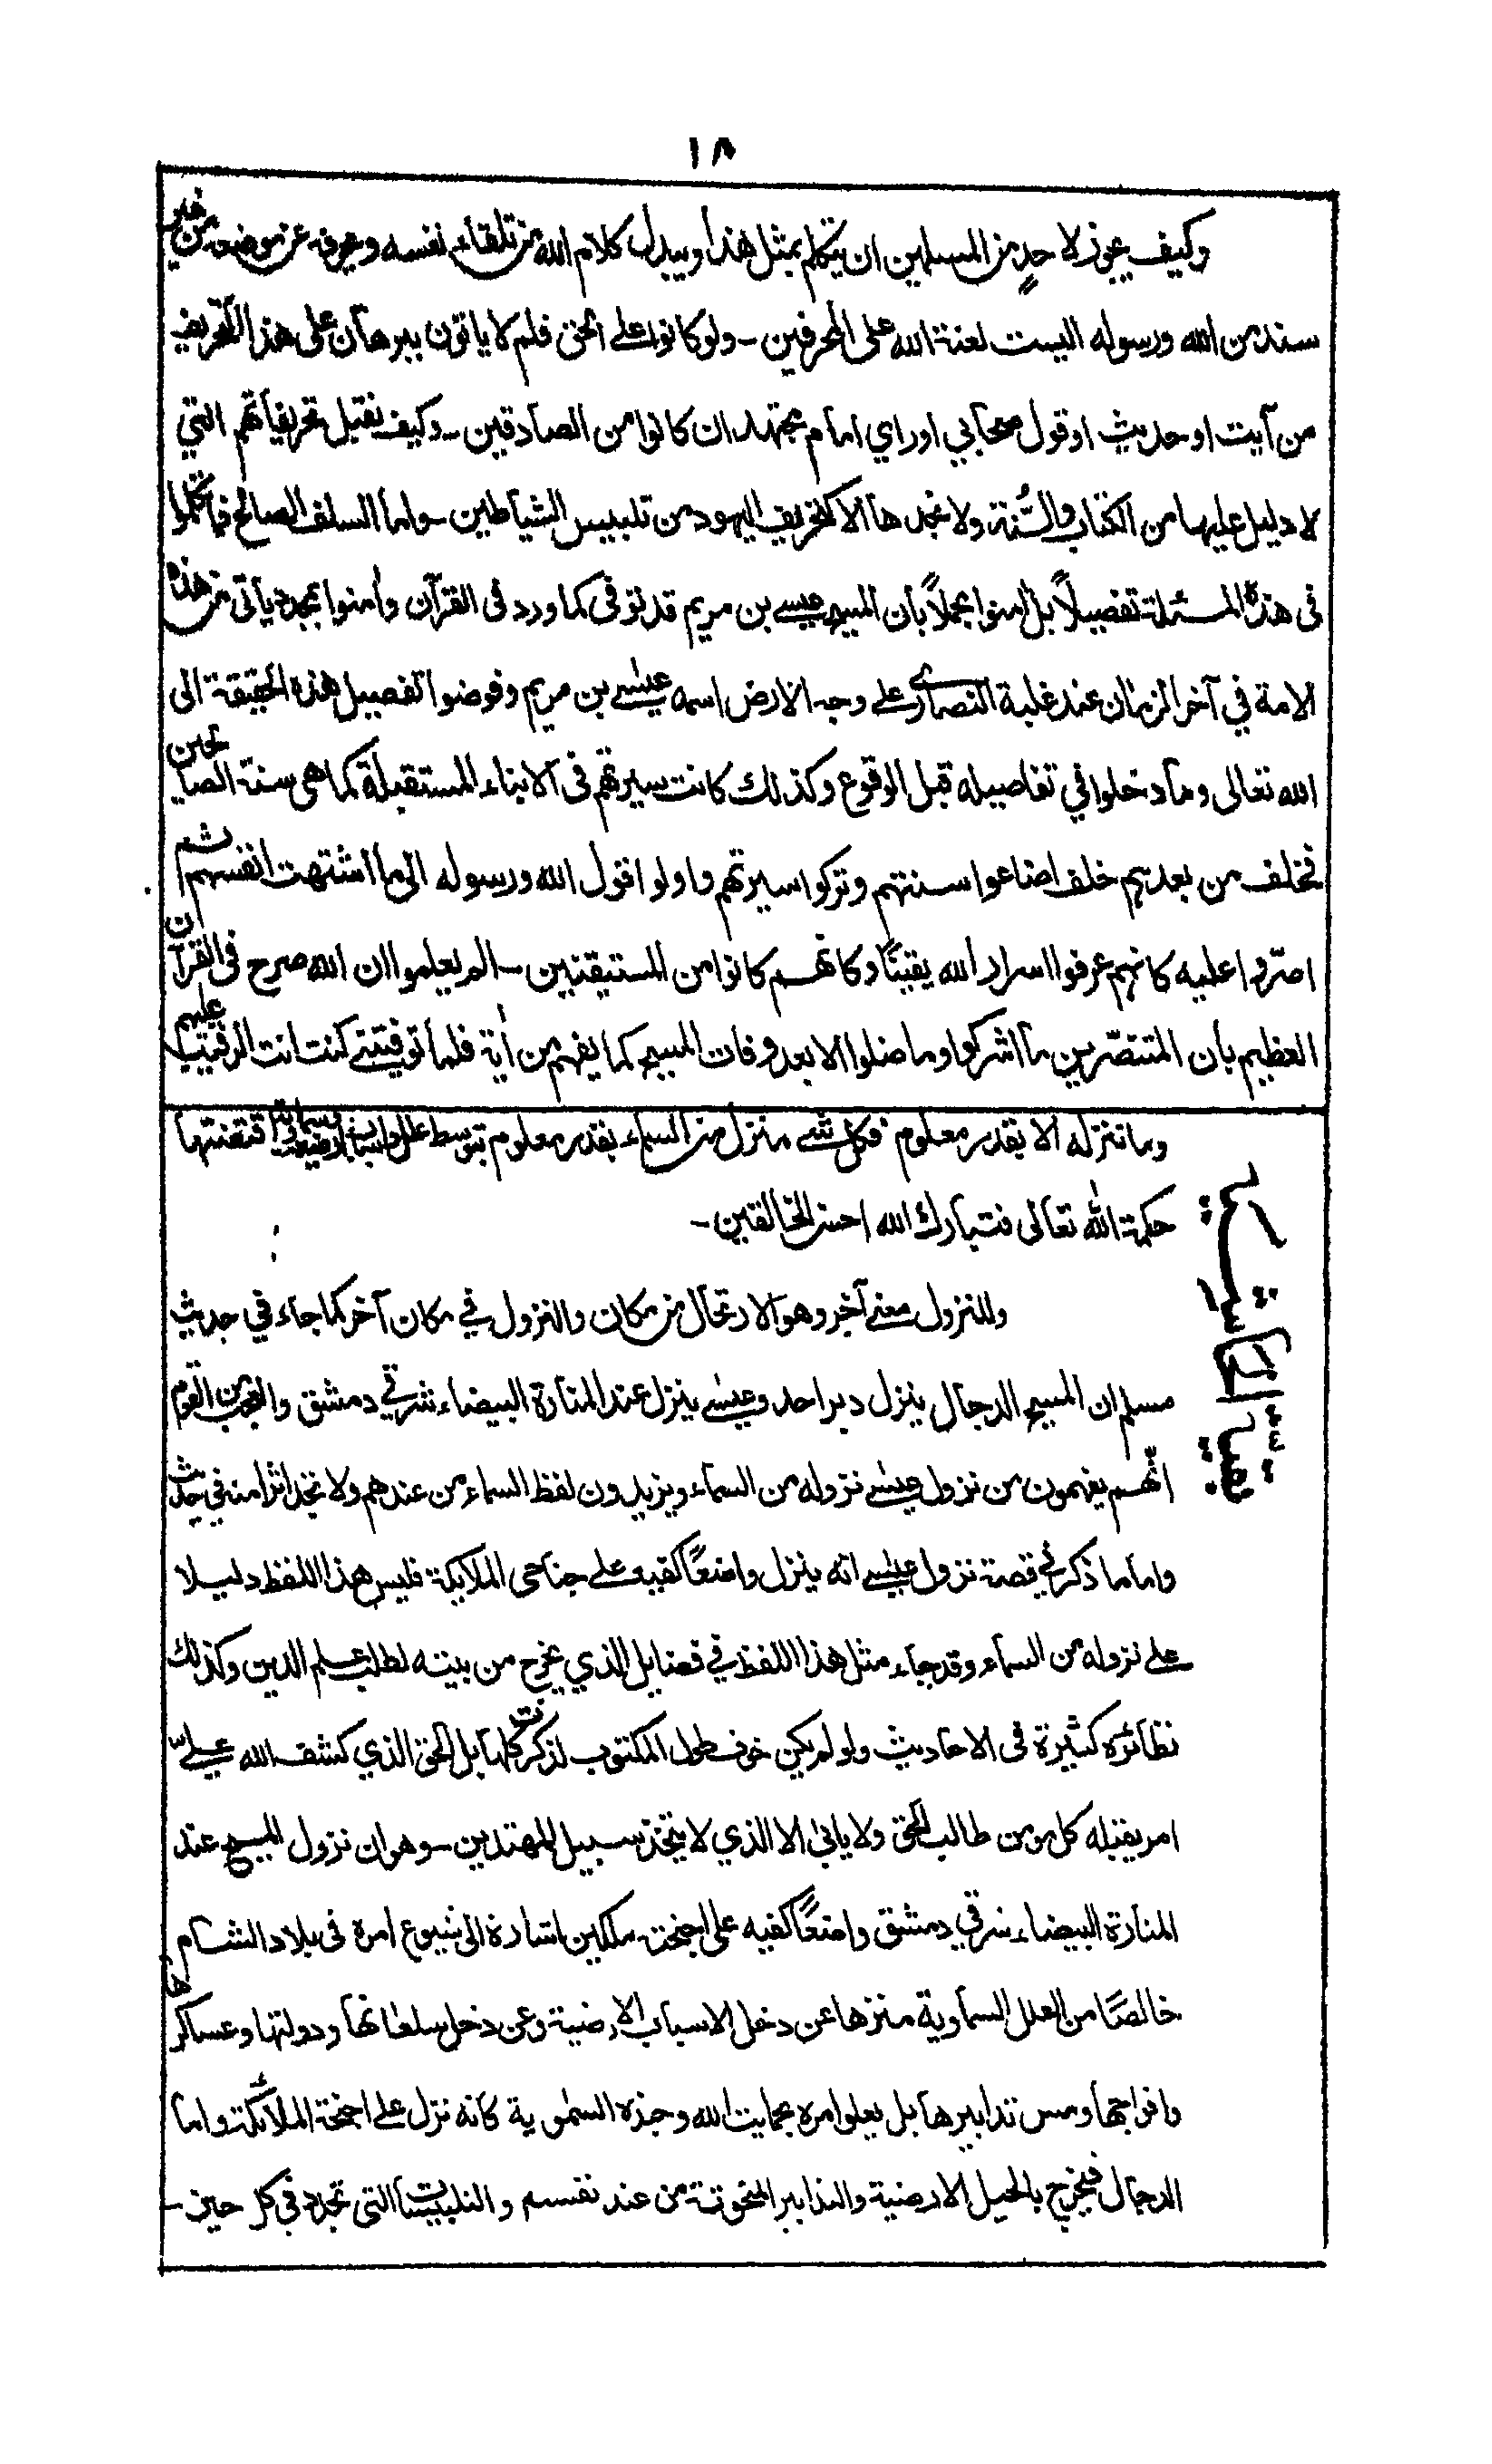 ١٨
وكيف يجوز لاحدٍ من المسلمين ان يتكلم بمثل هذا ويبدل كلام الله من تلقاء نفسه ويحرفه عن موضعه من غير
سند من الله ورسوله اليست لعنة الله على المحرفين - ولو كانوا على الحق فلم لا ياتون ببرهان على هذا التحريف
من آيت او حديث او قول صحابي اوراي امام مجتهد ان كانوا من الصادقين - وكيف نقبل تحريفاتهم التي
لا دليل عليها من الكتاب والسُّنة ولا نجدها الا كتحريف اليهود من تلبيس الشياطين - واما السلف الصالح فما تكلموا
فى هذه المسئلة تفصيلاً بل آمنوا مجملاً بأن المسيح عيسى بن مريم قد توفى كما ورد فى القرآن وآمنوا بمجدد ياتى من هذه
الامة في آخر الزمان عند غلبة النصارى على وجه الارض اسمه عيسى بن مريم وفوضوا تفصيل هذه الحقيقة الى
الله تعالى وما دخلوا في تفاصيله قبل الوقوع وكذلك كانت سيرتهم فى الانباء المستقبلة كما هى سنة الصالحين
فخلف من بعدهم خلف اضاعوا سنتهم وتركوا سيرتهم واولوا قول الله ورسوله الى ما اشتهت انفسهم ثم
اصرّوا عليه كانهم عرفوا اسرار الله يقينًا وكانهم كانوا من المستيقنين - الم يعلموا ان الله صرح فى القرآن
العظيم بأن المتنصّرين ما اشركوا وما ضلوا الا بعد وفات المسيح كما يفهم من آية فلما توفيتني كنت انت الرقيب عليهم
وما ننزله الا بقدر معلوم فكل شئ منزل من السماء بقدر معلوم بتوسط علل واسباب ارضية وسماوية اقتضتها
حكمة الله تعالى فتبارك الله احسن الخالقين -
وللنزول معنى آخر وهو الارتحال من مكان والنزول في مكان آخر كما جاء في حديث
مسلم ان المسيح الدجال ينزل دبر احد وعيسى ينزل عند المنارة البيضاء شرقي دمشق والعجب من القوم
انّهم يفهمون من نزول عيسى نزوله من السماء ويزيدون لفظ السماء من عندهم ولا تجد اثرا منه في حديث
واما ما ذكر في قصة نزول عيسى انه ينزل واضعًا كفيه على جناحى الملايكة فليس هذا اللفظ دليلا
على نزوله من السماء وقد جاء مثل هذا اللفظ في فضايل الذي يخرج من بيته لطلب علم الدين وكذلك
نظائره كثيرة فى الاحاديث ولو لم يكن خوف طول المكتوب لذكرت كلها بل الحق الذي كشف الله عليّ
امر يقبله كل مومن طالب الحق ولا يابى الا الذي لا يتخذ سبيل المهتدين - وهو ان نزول المسيح عند
المنارة البيضاء شرقي دمشق واضعًا كفيه على اجنحة ملكين اشارة الى شيوع امره فى بلاد الشام
خالصًا من العلل السماوية منزها عن دخل الاسباب الارضية وعن دخل سلطانها ودولتها وعساكرها
وافواجها ومس تدابيرها بل يعلو امره بحمايت الله وجنده السماوية كانه نزل على اجنحة الملائكة واما
الدجال فيخرج بالحيل الارضية والتدابير المنحوتة من عند نفسه والتلبيسات التى تجدد في كل حين -